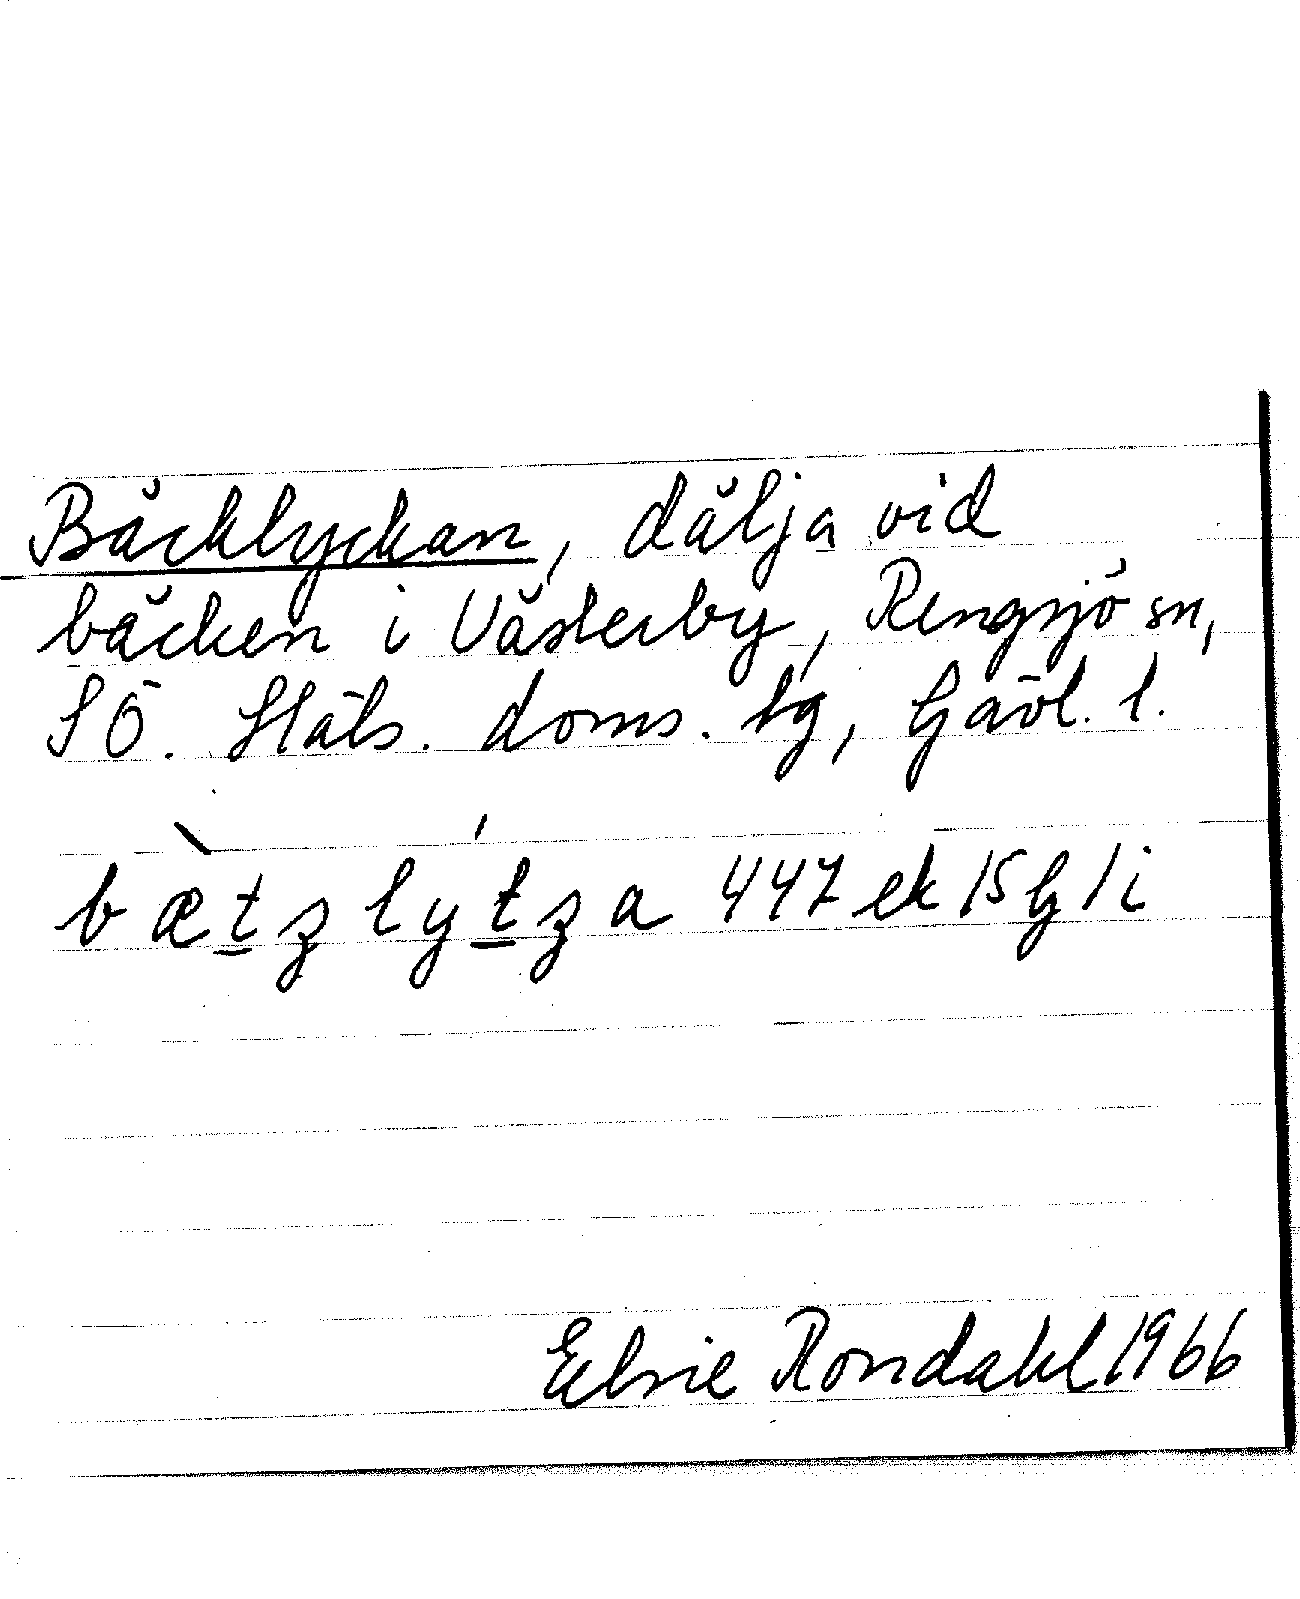 Bäcklyckan, dälja vid
bäcken i Västerby, Rengsjö sn,
SÖ. Häls. doms. tg, Gävl. l.
bæ̀t̠zlýt̠za 447 ek 15 G 1 i
Elsie Rondahl 1966